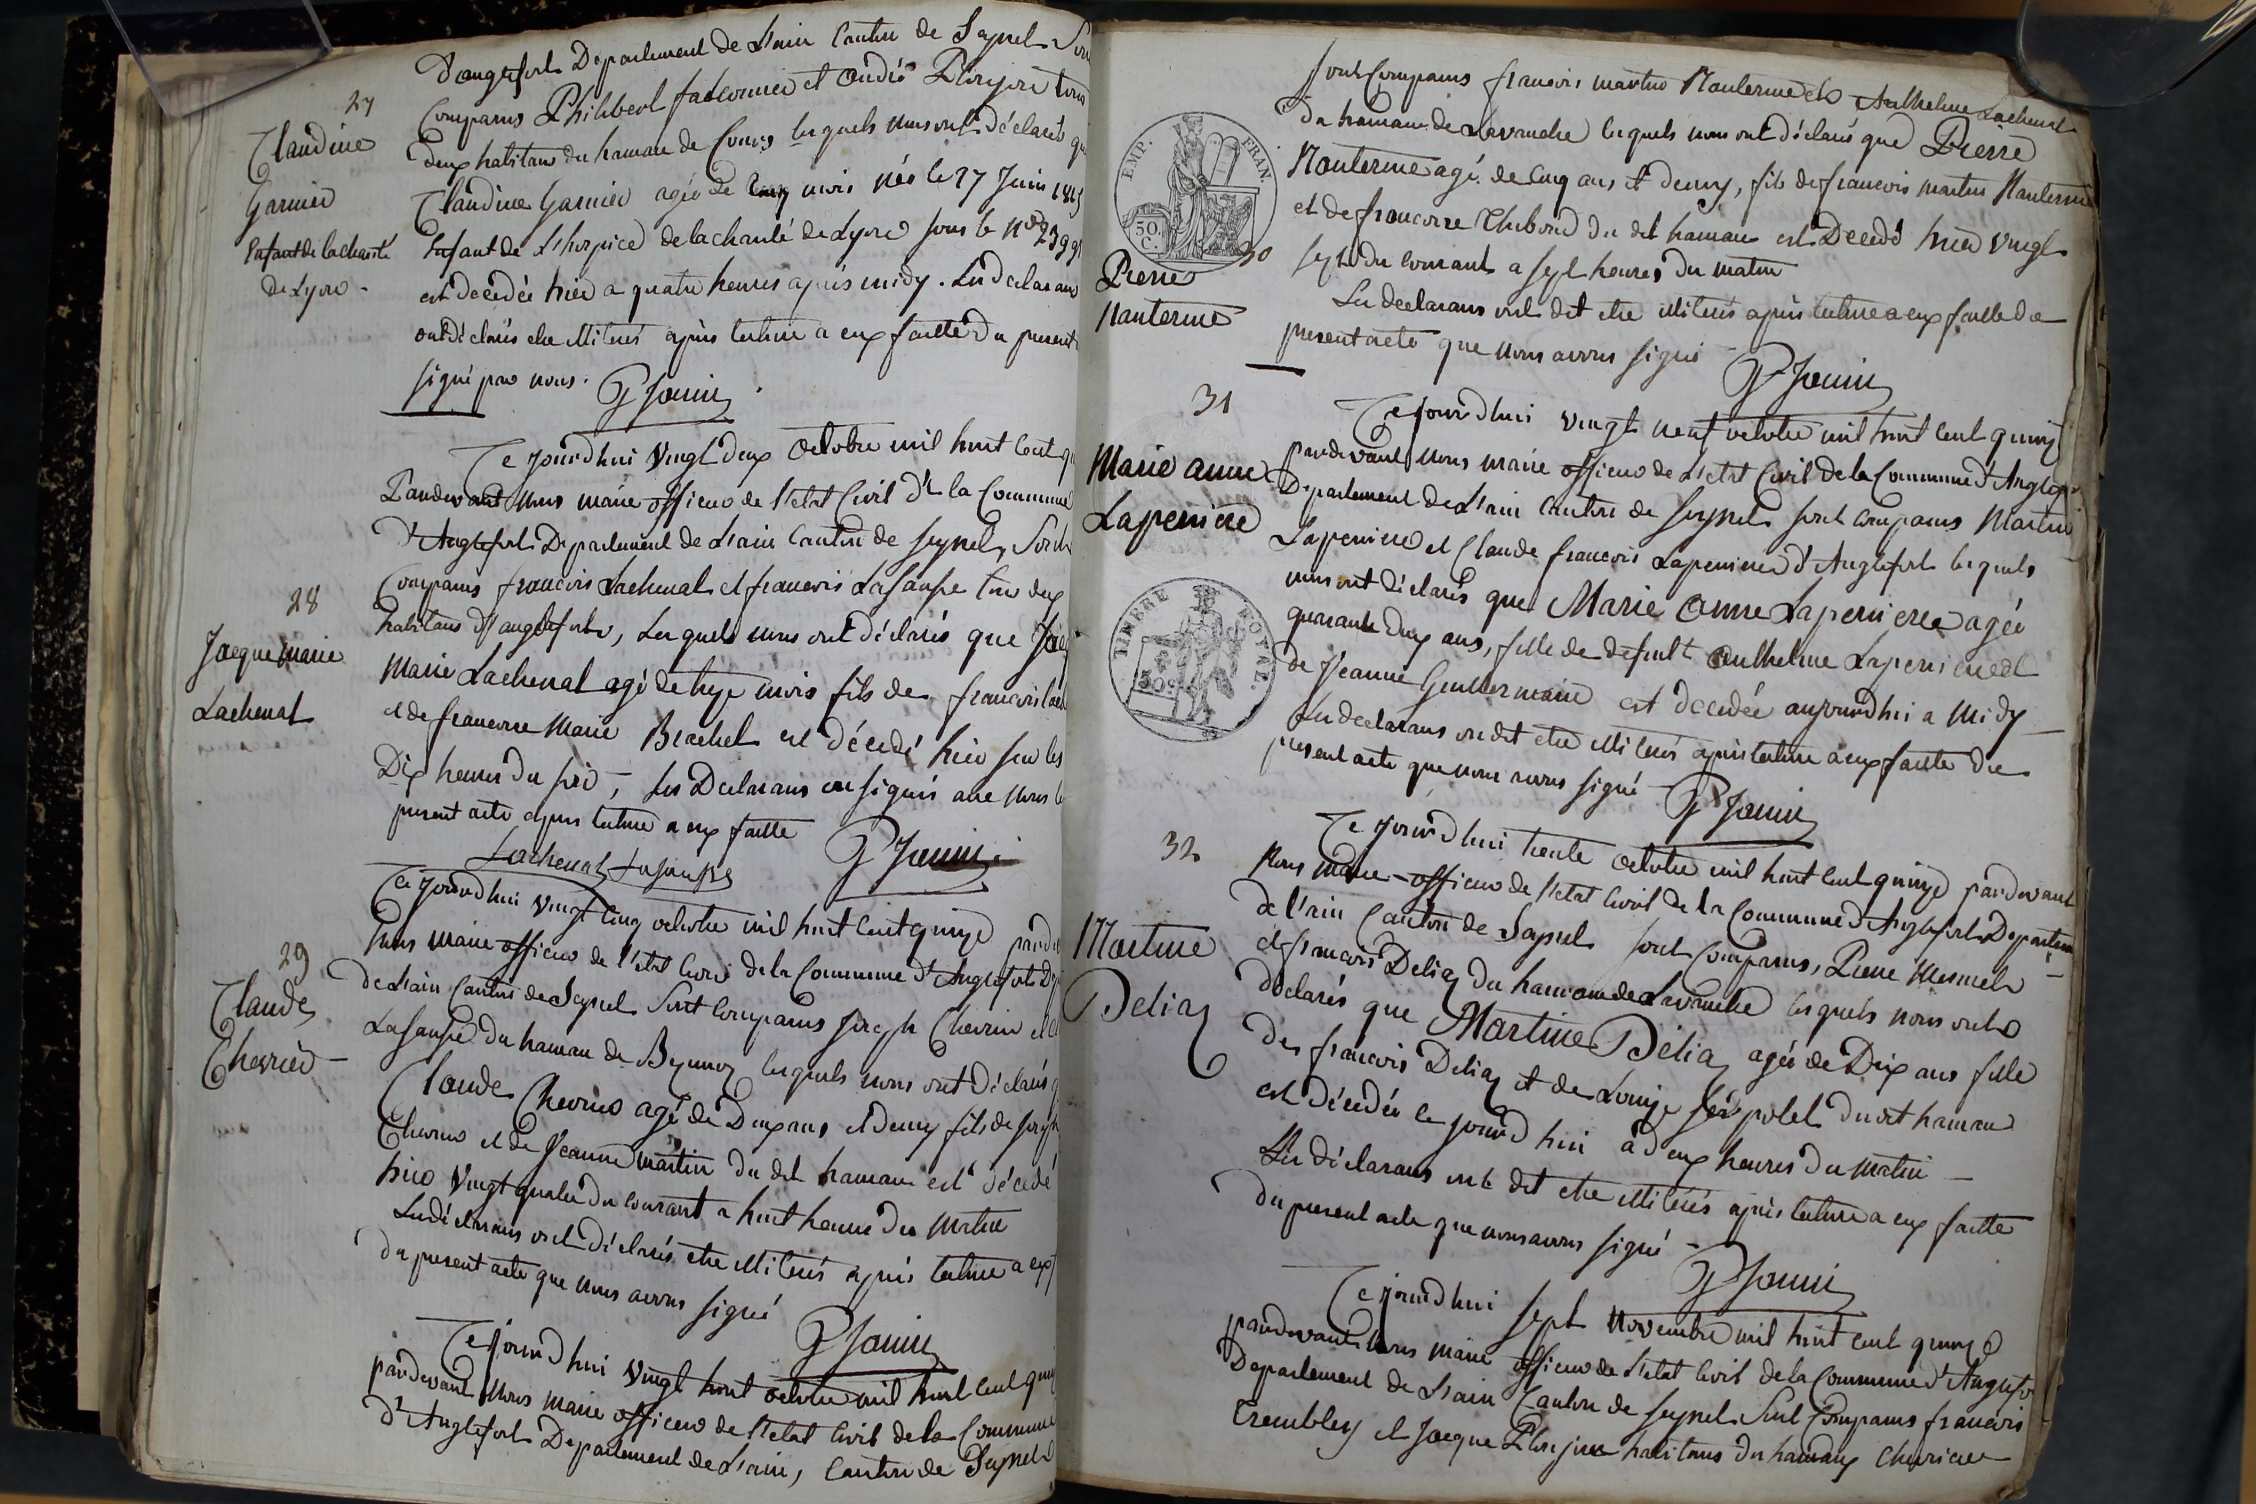 d'anglefort Departement de L'ain Canton de Seyssel Sont
27
Comparus Philibert falconnier et andré Plonjon tous
Claudine
deux habitans du hamau de lesquels nous ont déclarés que
Garnier
Claudine Garnier agée de cinq mois née le 27 Juin 1815
Enfant de la charité
Enfant de L'hospice de la charité de Lyon sous le No 2399
de Lyon -
est decedée hier a quatre heures après midy. Les declarans
ont déclarés etre illiterés après lecture a eux faitte du present
signé par nous.
P Janin
Ce jourdhui vingt deux octobre mil huit cent
Pardevant nous maire officier de l'etat Civil de la Commune
d'Anglefort Departement de L'ain Canton de Seyssel, Sont
Comparus francois Lachenal et francois Lasausse tous deux
28
habitans d'anglefort, Lesquels nous ont déclarés que
Jacque marie
Marie Lachenal agé de treize mois fils de francois
Lachenal
et de francoise Marie Brachet est décedé hier sur les
Dix heures du soir, Les Declarans ont signés avec nous le
present acte apres lecture a eux faitte
Lachenal Lasausse P Janin
Ce jourdhui vingt cinq octobre mil huit cent quinze
Nous maire officier de l'etat Civil de la Commune d'Anglefort
29
de L'ain Canton de Seyssel Sont Comparus joseph Chevrier et
Claude
Lasausse du hamau de lesquels nous ont déclarés
Chevrier
Claude Chevrier agé de Deux ans et demy fils de joseph
Chevrier et de Jeanne martin du dit hamau est décedé
hier vingt quatre du courant a huit heures du matin
Les déclarans ont déclarés etre illiterés après lecture a eux
du present acte que nous avons signé
P Janin
Ce jourdhui vingt huit octobre mil huit cent
pardevant nous maire officier de l'etat Civil de la Commune
d'Anglefort Departement de L'ain, Canton de Seyssel
sont Comparus francois martin Nanterme et Anthelme Lachenal
du hamau de Lavanche lesquels nous ont déclarés que Pierre
EMP. FRAN.
50. C.
Nanterme agé de cinq ans et demy, fils de francois martin Nanterme
30
et de francoise du dit hamau est Decedé hier vingt
Pierre
sept du courant a sept heures du matin
Nanterme
Les declarans ont dit etre illiterés après lecture a eux faitte du
present acte que nous avons signé
P Janin
31
Ce jourdhui vingt neuf octobre mil huit cent quinze
Marie anne
pardevant nous maire officier de L'etat Civil de la Commune d'Anglefort
Laperriere
Departement de L'ain Canton de Seyssel sont comparus Martin
Laperriere et Claude francois Laperriere d'Anglefort lesquels
nous ont déclarés que Marie anne Laperriere agée
TIMBRE ROYAL.
50c
quarante deux ans, fille de defunt Anthelme Laperriere et
de Jeanne est decedée aujourdhui a Midy
Les declarans ont dit etre illiterés après lecture a eux faitte du
present acte que nous avons signé
P Janin
32
Ce jourdhui trente octobre mil huit cent quinze pardevant
Nous maire officier de l'etat Civil de la Commune d'Anglefort Departement
Martine
de l'ain Canton de Seyssel sont Comparus, Pierre
Deliaz
et francois Deliaz du hamau de Lavanche lesquels nous ont
déclarés que Martine Deliaz agée de Dix ans fille
de francois Deliaz et de Louise du dit hamau
est décedée ce jourdhui à deux heures du matin
Les déclarans ont dit etre illiterés après lecture a eux faitte
du present acte que nous avons signé
P Janin
Ce jourdhui sept Novembre mil huit cent quinze
pardevant nous maire officier de l'etat Civil de la Commune d'Anglefort
Departement de L'ain Canton de Seyssel Sont Comparus francois
Trembley et Jacque Plonjon habitans du hamaux